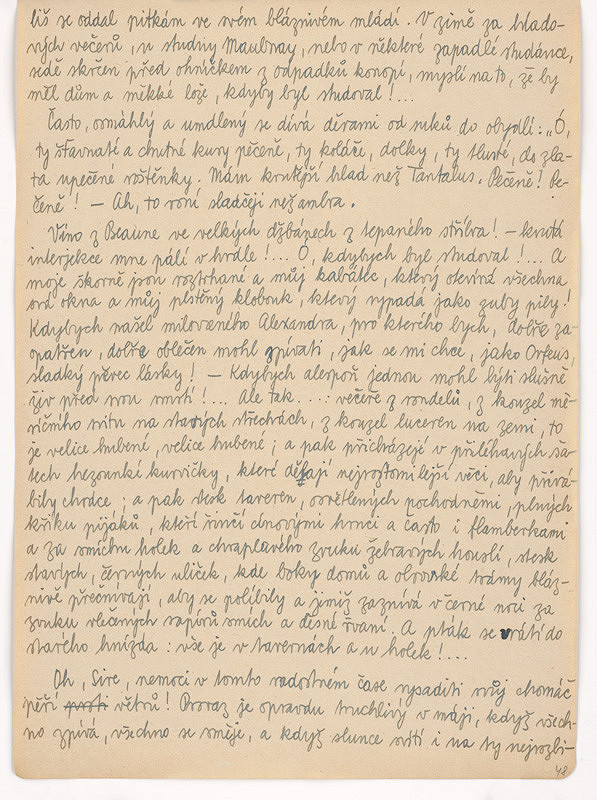 liš se oddal pitkám ve svém bláznivém mládí. V zimě za hlado-
vých večerů, u studny Maubuay, nebo v některé zapadlé studánce,
sedě skrčen před ohníčkem z odpadků konopí, myslí na to, že by
měl dům a měkké lože, kdyby byl studoval!...
Často, osmáhlý a umdlený se dívá děrami od suků do obydlí: „Ó,
ty šťavnaté a chutné kusy pečeně, ty koláče, dolky, ty tlusté, do zla-
ta upečené roštěnky. Mám krutější hlad než Tantalus. Pečeně! Pe-
čeně! — Ah, to voní sladčeji než ambra.
Víno z Beaune ve velkých džbánech z tepaného stříbra! — krutá
interjekce mne pálí v hrdle!... Ó, kdybych byl studoval!... A
moje škorně jsou roztrhané a můj kabátec, který otevírá všechna
svá okna a můj plstěný klobouk, který vypadá jako zuby pily!
Kdybych našel milovaného Alexandra, pro kterého bych, dobře za-
opatřen, dobře oblečen mohl zpívati, jak se mi chce, jako Orfeus,
sladký pěvec lásky! — Kdybych alespoň jednou mohl býti slušně
živ před svou smrtí!... Ale tak....: večeře z rondelů, z kouzel mě-
síčního svitu na starých střechách, z kouzel luceren na zemi, to
je velice hubené, velice hubené; a pak přicházejí v přiléhavých ša-
tech hezounké kurvičky, které dělají nejroztomilejší věci, aby přivá-
bily chodce; a pak stesk taveren, osvětlených pochodněmi, plných
křiku pijáků, kteří řinčí cínovými hrnci a často i flamberkami
a za smíchu holek a chraplavého zvuku žebravých houslí, stesk
starých, černých uliček, kde boky domů a obrovské trámy bláz-
nivě přečnívají, aby se políbily a jimiž zaznívá v černé noci za
zvuku vlečených rapírů smích a děsné řvaní. A pták se vrátí do
starého hnízda: vše je v tavernách a u holek!...
Oh, Sire, nemoci v tomto radostném čase vysaditi svůj chomáč
péří větrů! Provaz je opravdu truchlivý v máji, když všech-
no zpívá, všechno se směje, a když slunce svítí i na ty nejrozbi-
48